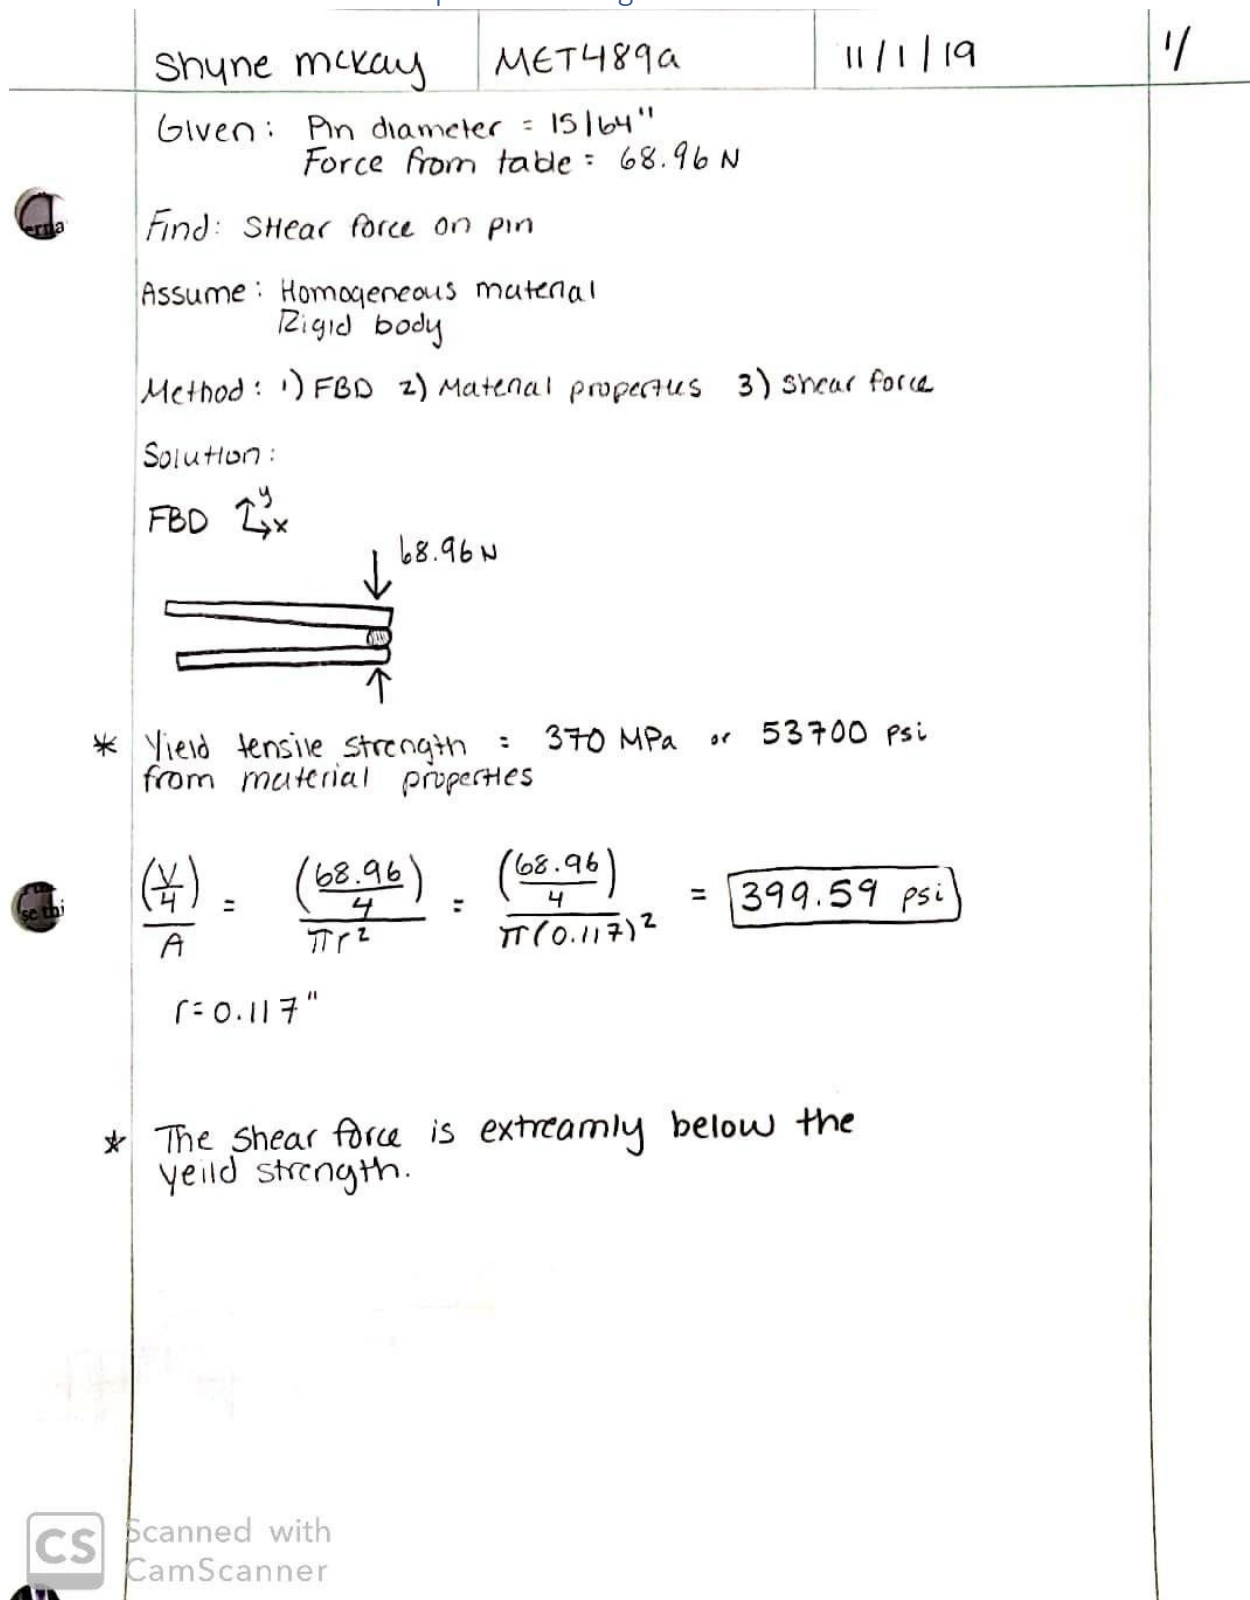 Shyne mckay MET489a 11/1/19 1/
Given: Pin diameter = 15/64"
Force from table = 68.96 N
Find: SHear force on pin
Assume: Homogeneous material
Rigid body
Method: 1) FBD 2) Material properties 3) Shear force
Solution:
FBD y
x
68.96 N
* Yield tensile strength = 370 MPa or 53700 psi
from material properties
(V/4)/A = (68.96/4)/πr² = (68.96/4)/π(0.117)² = 399.59 psi
r=0.117"
* The shear force is extreamly below the
yeild strength.
CS Scanned with
CamScanner